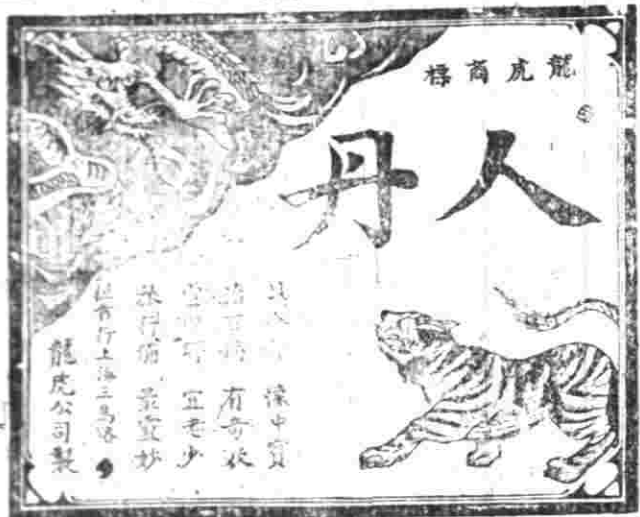 龍虎商標
人丹
懷中寶
治百病 有奇效
宜老少
旅行備 最宜妙
總發行上海三馬路
龍虎公司製